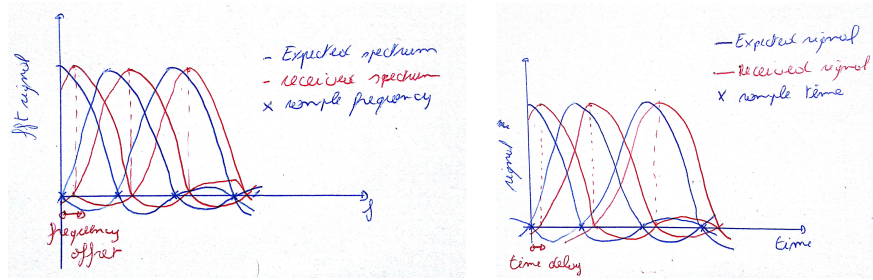 fft signal
- Expected spectrum
- received spectrum
x sample frequency
f
frequency
offset
signal
- Expected signal
- Received signal
x sample time
time
time delay